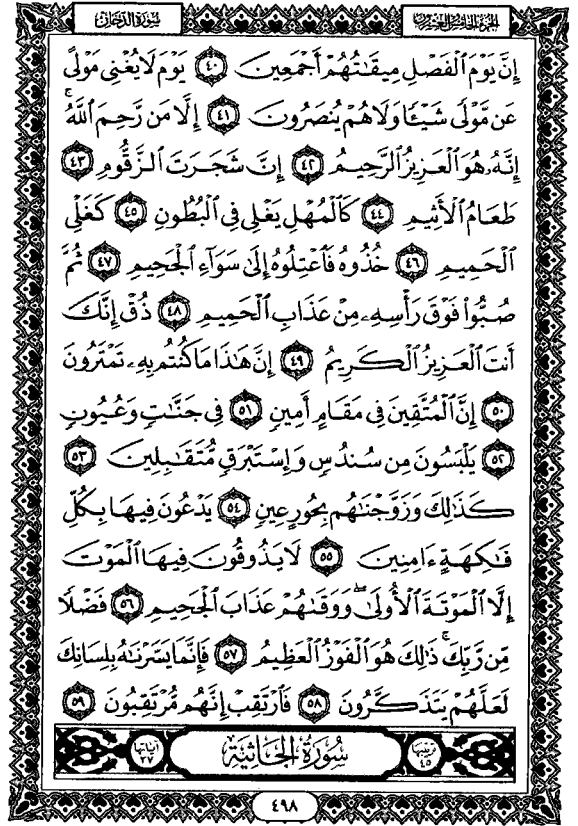 الجزء الخامس والعشرون
سورة الدخان
إِنَّ يَوْمَ ٱلْفَصْلِ مِيقَٰتُهُمْ أَجْمَعِينَ ٤٠ يَوْمَ لَا يُغْنِى مَوْلًى
عَن مَّوْلًى شَيْـًٔا وَلَا هُمْ يُنصَرُونَ ٤١ إِلَّا مَن رَّحِمَ ٱللَّهُ ۚ
إِنَّهُۥ هُوَ ٱلْعَزِيزُ ٱلرَّحِيمُ ٤٢ إِنَّ شَجَرَتَ ٱلزَّقُّومِ ٤٣
طَعَامُ ٱلْأَثِيمِ ٤٤ كَٱلْمُهْلِ يَغْلِى فِى ٱلْبُطُونِ ٤٥ كَغَلْىِ
ٱلْحَمِيمِ ٤٦ خُذُوهُ فَٱعْتِلُوهُ إِلَىٰ سَوَآءِ ٱلْجَحِيمِ ٤٧ ثُمَّ
صُبُّوا۟ فَوْقَ رَأْسِهِۦ مِنْ عَذَابِ ٱلْحَمِيمِ ٤٨ ذُقْ إِنَّكَ
أَنتَ ٱلْعَزِيزُ ٱلْكَرِيمُ ٤٩ إِنَّ هَٰذَا مَا كُنتُم بِهِۦ تَمْتَرُونَ
٥٠ إِنَّ ٱلْمُتَّقِينَ فِى مَقَامٍ أَمِينٍ ٥١ فِى جَنَّٰتٍ وَعُيُونٍ
٥٢ يَلْبَسُونَ مِن سُندُسٍ وَإِسْتَبْرَقٍ مُّتَقَٰبِلِينَ ٥٣
كَذَٰلِكَ وَزَوَّجْنَٰهُم بِحُورٍ عِينٍ ٥٤ يَدْعُونَ فِيهَا بِكُلِّ
فَٰكِهَةٍ ءَامِنِينَ ٥٥ لَا يَذُوقُونَ فِيهَا ٱلْمَوْتَ
إِلَّا ٱلْمَوْتَةَ ٱلْأُولَىٰ ۖ وَوَقَىٰهُمْ عَذَابَ ٱلْجَحِيمِ ٥٦ فَضْلًا
مِّن رَّبِّكَ ۚ ذَٰلِكَ هُوَ ٱلْفَوْزُ ٱلْعَظِيمُ ٥٧ فَإِنَّمَا يَسَّرْنَٰهُ بِلِسَانِكَ
لَعَلَّهُمْ يَتَذَكَّرُونَ ٥٨ فَٱرْتَقِبْ إِنَّهُم مُّرْتَقِبُونَ ٥٩
ترتيبها ٤٥ سُورَةُ الْجَاثِيَةِ آياتها ٣٧
٤٩٨